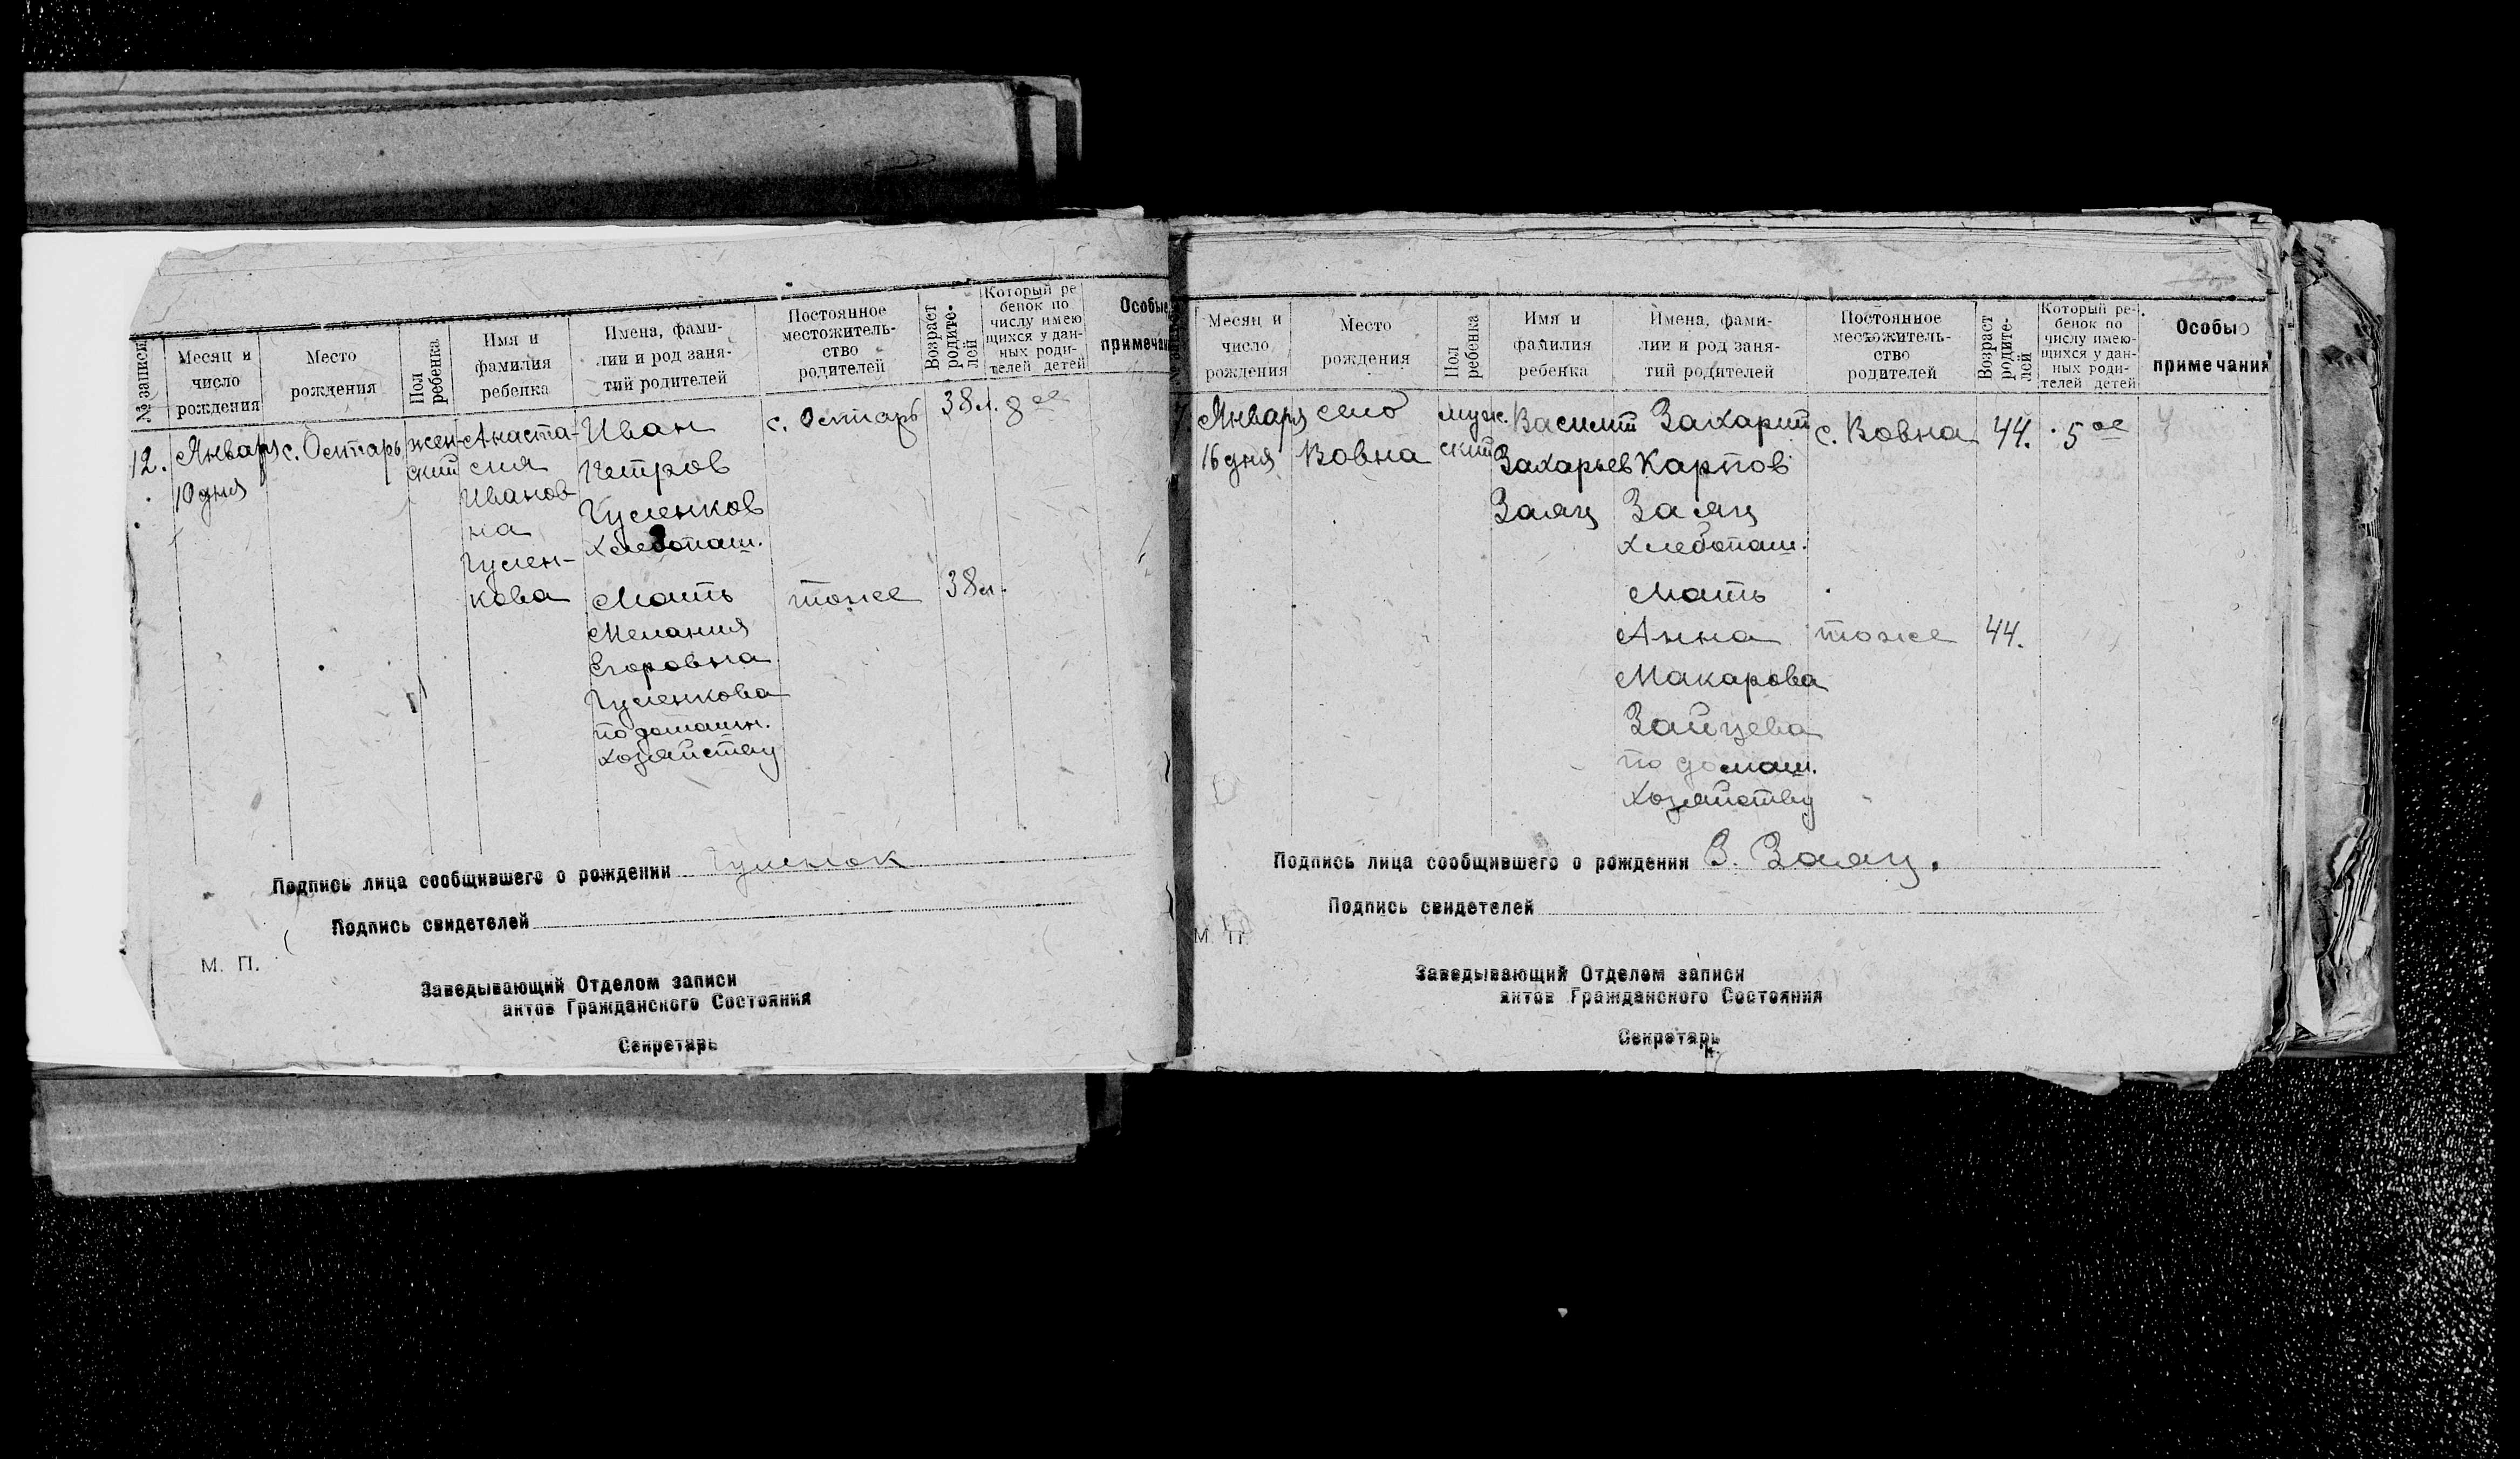 № записи
Месяц и
число
рождения
Место
рождения
Пол
ребенка
Имя и
фамилия
ребенка
Имена, фами-
лии и род заня-
тий родителей
Постоянное
местожитель-
ство
родителей
Возраст
родите-
лей
Который ре
бенок по
числу имею
щихся у дан-
ных роди-
телей детей
Особые
примечан
12.
Января
10 дня
с. Остарь
жен-
ский
Анаста-
сия
Иванов-
на
Гулен-
кова
Иван
Петров
Гуленков
хлебопаш.
с. Остарь
38 л.
8 ое
Мать
Мелания
Егоровна
Гуленкова
по домашн.
хозяйству
тоже
38 л.
Подпись лица сообщившего о рождении Гуленок
Подпись свидетелей
М. П.
Заведывающий Отделом записи
актов Гражданского Состояния
Секретарь
Месяц и
число
рождения
Место
рождения
Пол
ребенка
Имя и
фамилия
ребенка
Имена, фами-
лии и род заня-
тий родителей
Постоянное
местожитель-
ство
родителей
Возраст
родите-
лей
Который ре-
бенок по
числу имею-
щихся у дан-
ных роди-
телей детей
Особые
примечания
Января
16 дня
село
Вовна
муж.
ский
Василий
Захарьев
Заяц
Захарий
Карпов
Заяц
хлебопаш.
с. Вовна
44.
5 ое
Мать
Анна
Макарова
Зайцева
по домаш.
хозяйству
тоже
44.
Подпись лица сообщившего о рождении З. Заяц.
Подпись свидетелей
М. П.
Заведывающий Отделом записи
актов Гражданского Состояния
Секретарь